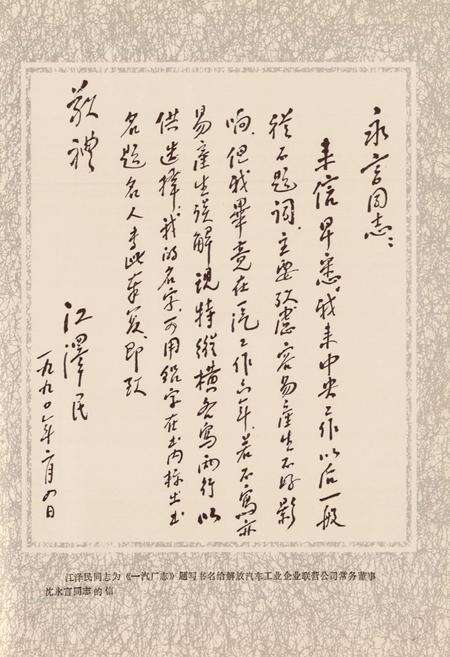 永言同志：
来信早悉，我来中央工作以后一般
從不题词，主要攷慮容易產生不好影
响。但我畢竟在一汽工作六年，若不寫亦
易產生误解，現特縱横各寫兩行以
供选擇，我的名字可用铅字在书内标出书
名题名人，专此奉复，即致
敬禮
江澤民
一九九〇年二月四日
江泽民同志为《一汽厂志》题写书名给解放汽车工业企业联营公司常务董事
沈永言同志的信